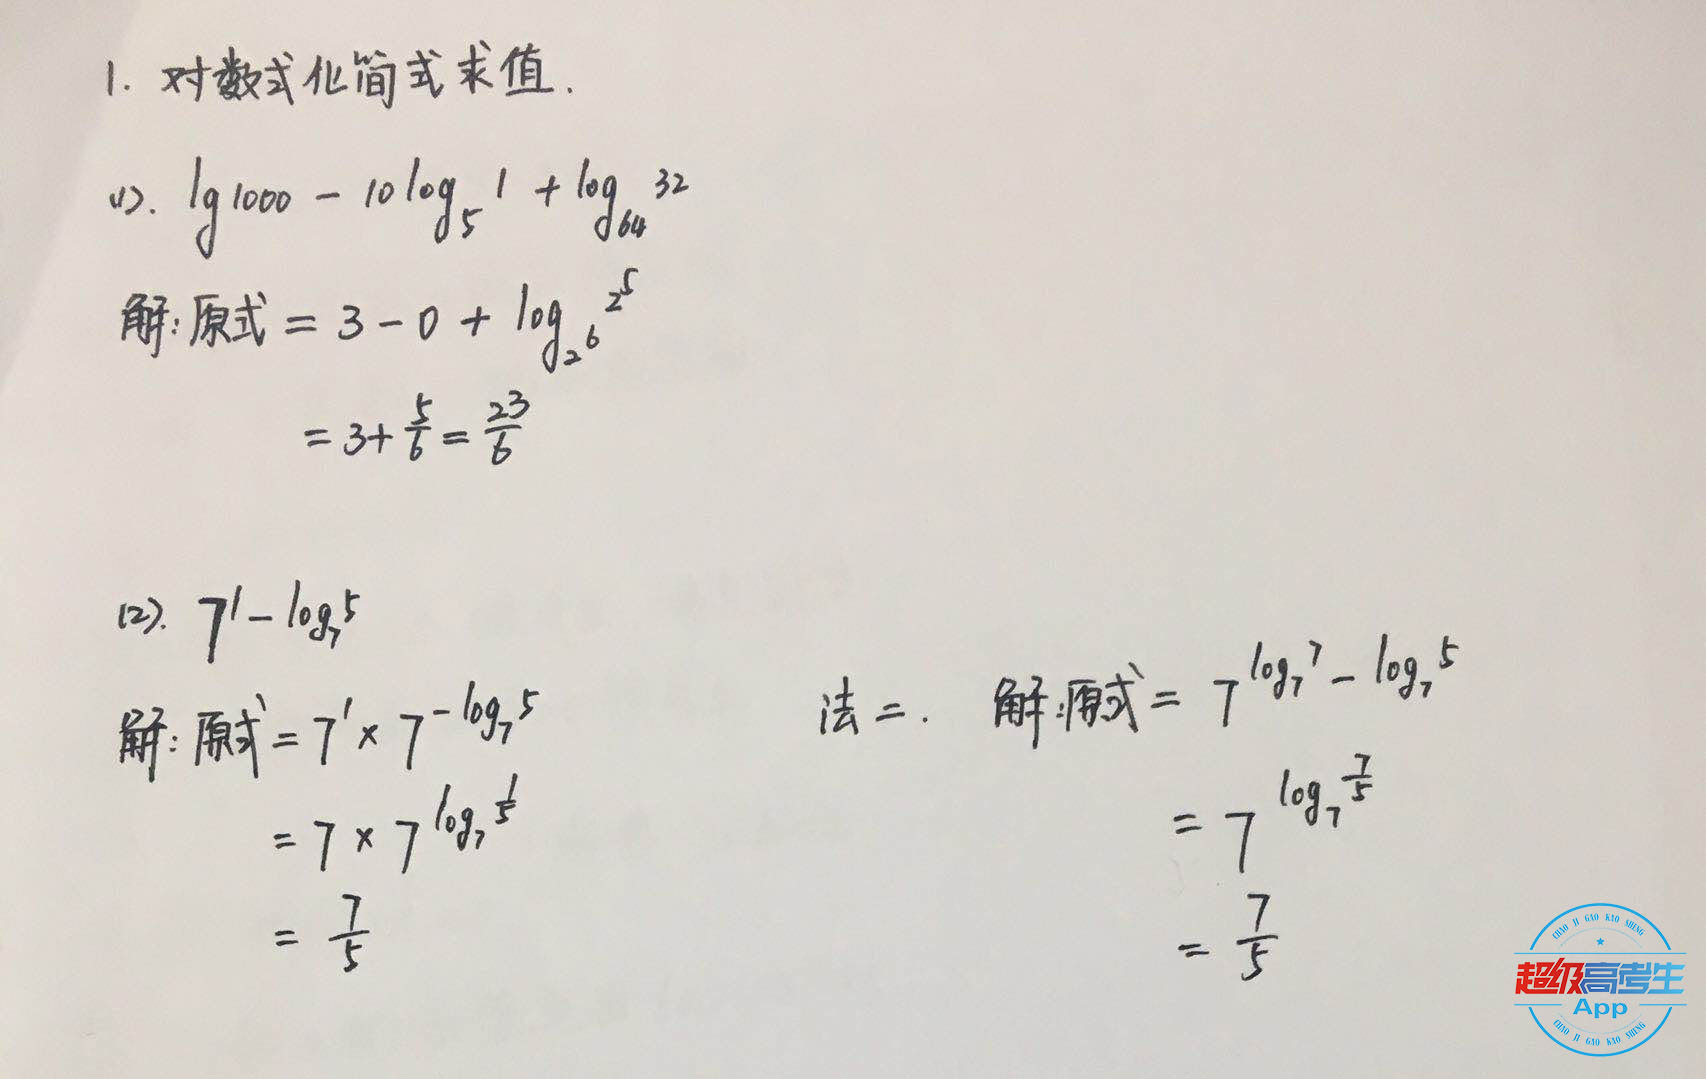 1. 对数式化简式求值.
(1). lg1000 - 10log₅1 + log₆₄32
解:原式 = 3 - 0 + log_{2⁶}2⁵
= 3 + 5/6 = 23/6
(2). 7^{1 - log₇5}
解:原式 = 7¹ × 7^{-log₇5}
= 7 × 7^{log₇1/5}
= 7/5
法二. 解:原式 = 7^{log₇7 - log₇5}
= 7^{log₇7/5}
= 7/5
CHAO JI GAO KAO SHENG
超级高考生
App
CHAO JI GAO KAO SHENG